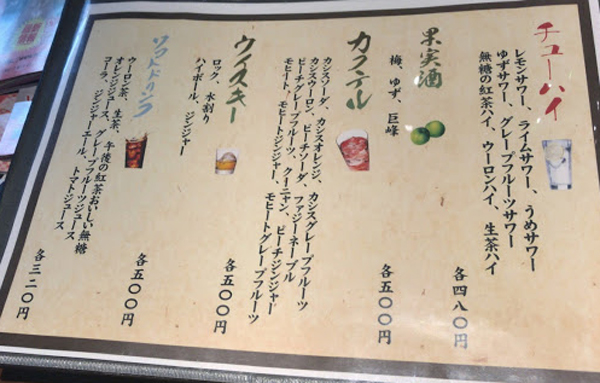 チューハイ
レモンサワー、ライムサワー、うめサワー
ゆずサワー、グレープフルーツサワー
無糖の紅茶ハイ、ウーロンハイ、生茶ハイ
各四八〇円
果実酒
梅、ゆず、巨峰
各五〇〇円
カクテル
カシスソーダ、カシスオレンジ、カシスグレープフルーツ
カシスウーロン、ピーチソーダ、ファジーネーブル
ピーチグレープフルーツ、クーニャン、ピーチジンジャー
モヒート、モヒートジンジャー、モヒートグレープフルーツ
ウイスキー
ロック、水割り
ハイボール、ジンジャー
各五〇〇円
ソフトドリンク
ウーロン茶、生茶、午後の紅茶おいしい無糖
オレンジジュース、グレープフルーツジュース
コーラ、ジンジャーエール、トマトジュース
各五〇〇円
各三二〇円